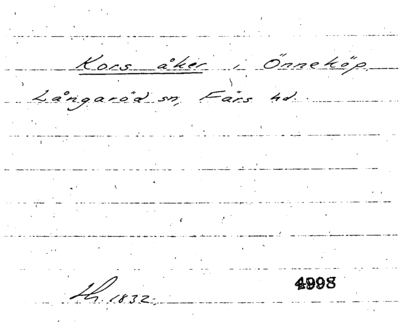 Kors åker i Önneköp
Långaröd sn, Färs hd.
Lh. 1832
4998